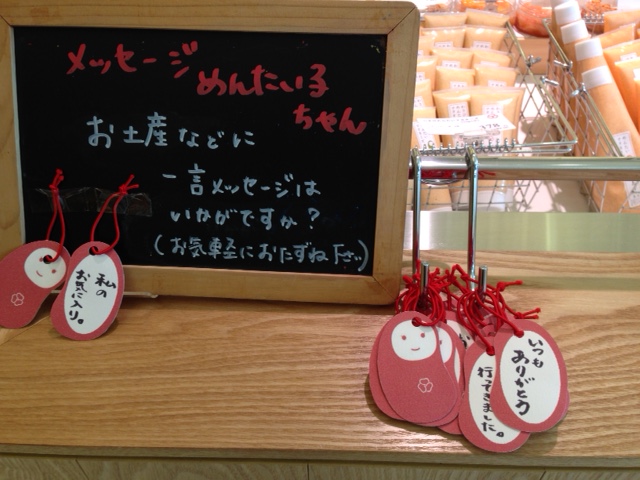 メッセージ
めんたい子
ちゃん
お土産などに
一言メッセージは
いかがですか?
(お気軽におたずね下さい)
私の
お気に入り。
いつも
ありがとう
行ってきました。